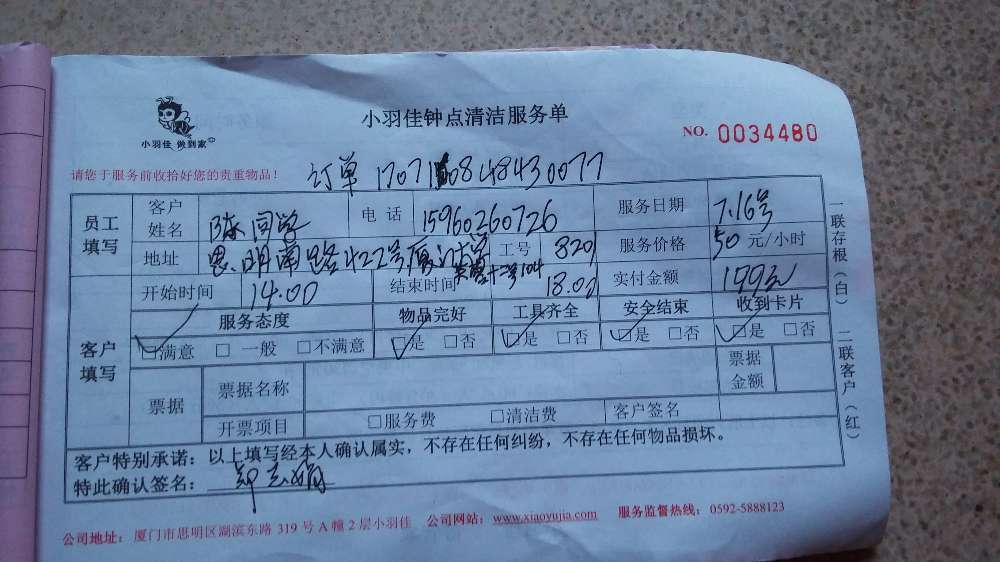 小羽佳 做到家
小羽佳钟点清洁服务单
NO. 0034480
请您于服务前收拾好您的贵重物品！
订单 17071 084843 0077
员工填写 客户姓名 陈同学 电话 15960260726 服务日期 7.16号
地址 思明南路422号厦门大学 工号 8201 服务价格 50 元/小时
芙蓉十二号104
开始时间 14.00 结束时间 18.00 实付金额 199元
客户填写 服务态度 物品完好 工具齐全 安全结束 收到卡片
□满意 □一般 □不满意 □是 □否 □是 □否 □是 □否 □是 □否
票据 票据名称 票据金额
开票项目 □服务费 □清洁费 客户签名
客户特别承诺：以上填写经本人确认属实，不存在任何纠纷，不存在任何物品损坏。
特此确认签名：
一联存根（白） 二联客户（红）
公司地址：厦门市思明区湖滨东路 319 号 A 幢 2 层小羽佳 公司网站：www.xiaoyujia.com 服务监督热线：0592-5888123